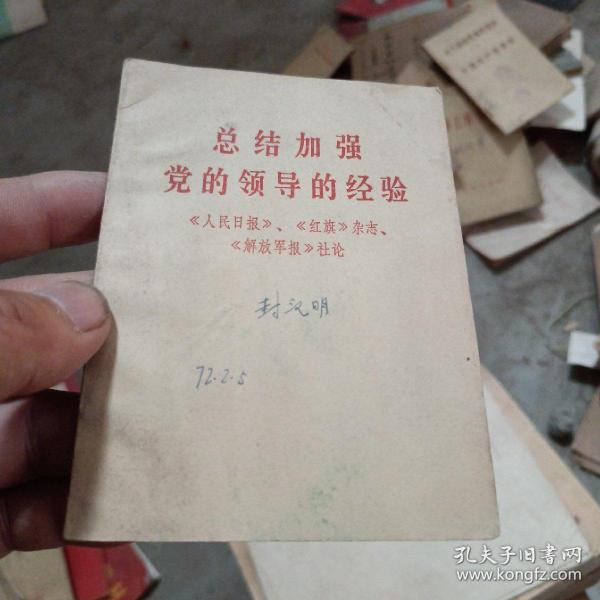 总结加强
党的领导的经验
《人民日报》、《红旗》杂志、
《解放军报》社论
封汉明
72.2.5
孔夫子旧书网
www.kongfz.com